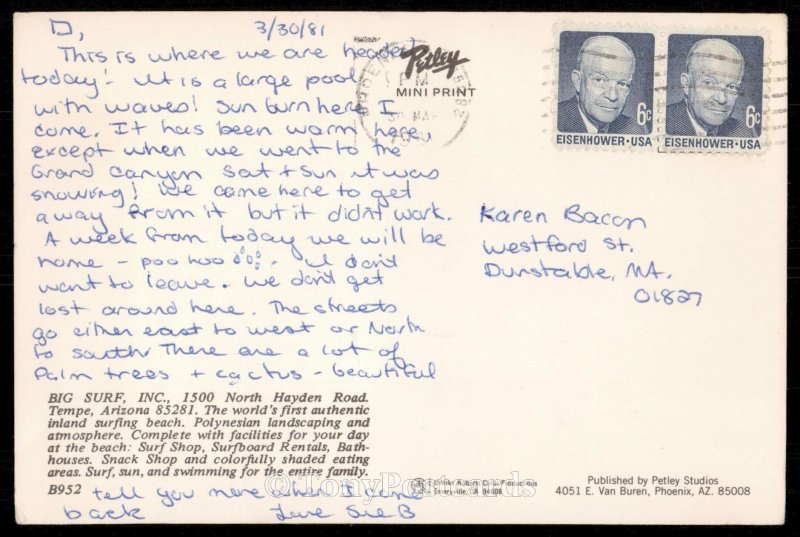 D, 3/30/81
This is where we are headed
today! It is a large pool
with waves! Sun burn here I
come. It has been warm here
except when we went to the
Grand Canyon Sat + Sun it was
snowing! We came here to get
away from it but it didn't work.
A week from today we will be
home - poo hoo. I don't
want to leave. We don't get
lost around here. The streets
go either east to west or North
to south. There are a lot of
Palm trees + cactus - beautiful
BIG SURF, INC., 1500 North Hayden Road.
Tempe, Arizona 85281. The world's first authentic
inland surfing beach. Polynesian landscaping and
atmosphere. Complete with facilities for your day
at the beach: Surf Shop, Surfboard Rentals, Bath-
houses. Snack Shop and colorfully shaded eating
areas. Surf, sun, and swimming for the entire family.
B952 tell you more when I come
back Love Sue B
Petley
MINI PRINT
PHOENIX
PM
6c 6c
EISENHOWER·USA EISENHOWER·USA
Karen Bacon
Westford St.
Dunstable, MA.
01827
© TonyPostcards
Emeryville, CA 94608
Published by Petley Studios
4051 E. Van Buren, Phoenix, AZ. 85008